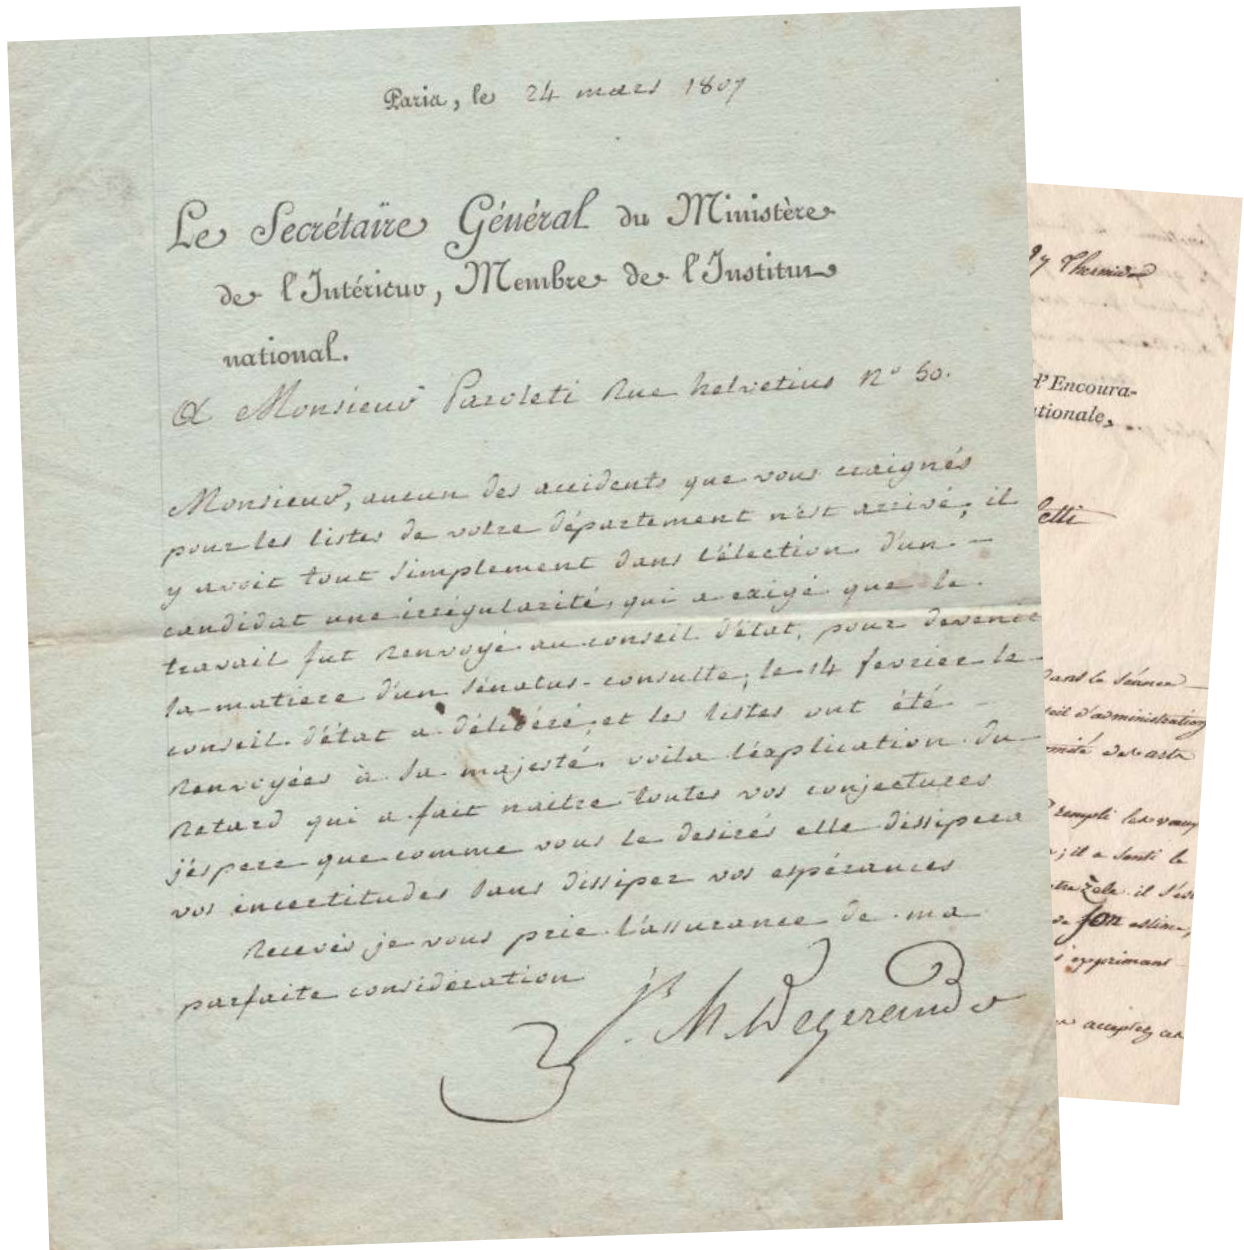 Paris, le 24 mars 1807
Le Secrétaire Général du Ministère
de l'Intérieur, Membre de l'Institut
national.
A Monsieur Paroleti Rue helvetius n° 50.
Monsieur, aucun des accidents que vous craignés
pour les listes de votre département n'est arrivé, il
y avoit tout simplement dans l'élection d'un
candidat une irrégularité, qui a exigé que le
travail fut renvoyé au conseil d'état, pour devenir
la matiere d'un sénatus-consulte, le 14 fevrier le
conseil d'état a délibéré, et les listes ont été
renvoyées à sa majesté. voila l'explication du
retard qui a fait naitre toutes vos conjectures
j'espere que comme vous le desirés elle dissipera
vos incertitudes sans dissiper vos espérances
Recevés je vous prie l'assurance de ma
parfaite considération
J. M. Degerando
d'Encoura-
tionale,
etti
dans la séance
seil d'administration
mité des arts
rempli les vœux
; il a senti le
zele il s'est
de son estime,
s'exprimant
acceptez ces